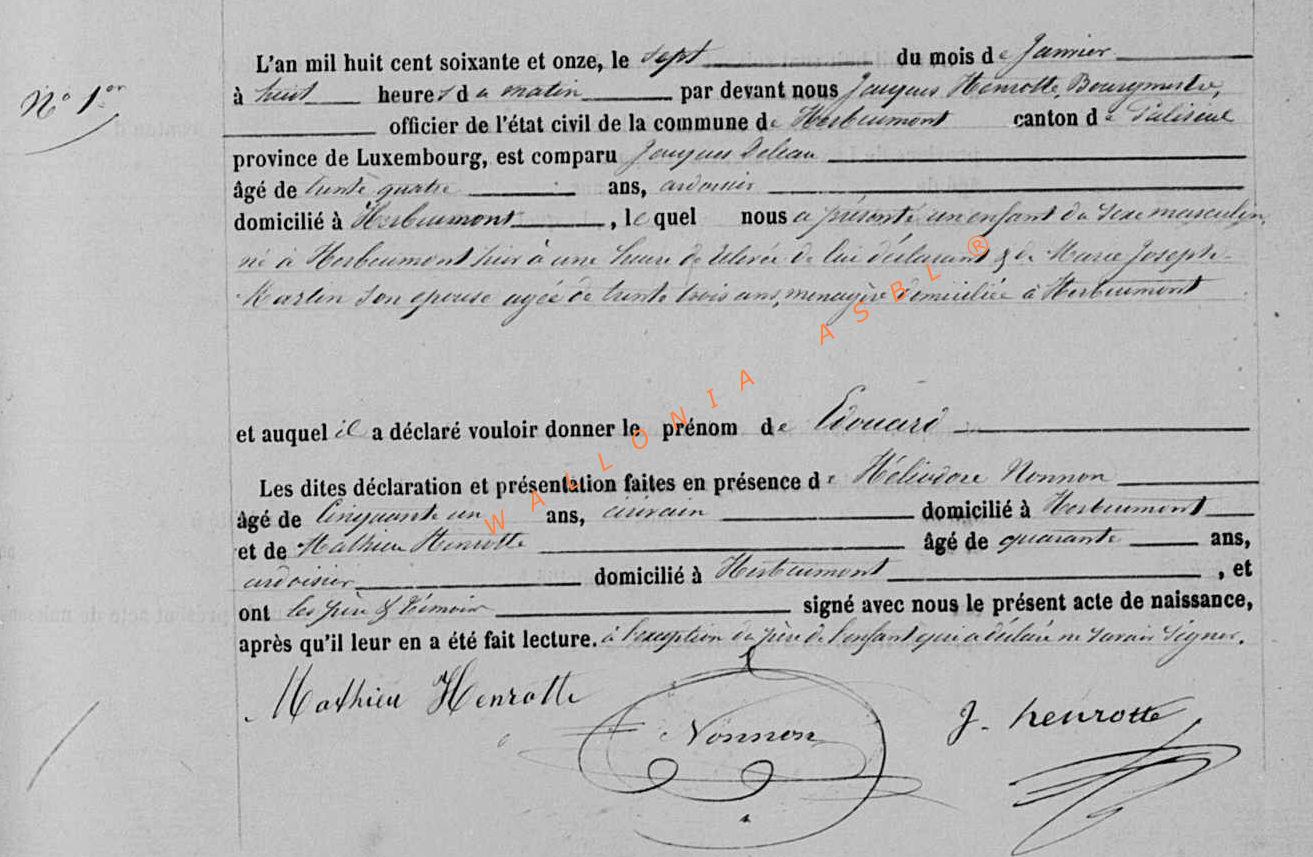 N° 1er
L'an mil huit cent soixante et onze, le sept du mois de Janvier
à huit heures du matin par devant nous Jacques Henrotte, Bourgmestre,
officier de l'état civil de la commune de Herbeumont canton de Paliseul
province de Luxembourg, est comparu Jacques
âgé de trente quatre ans, ardoisier
domicilié à Herbeumont, lequel nous a présenté un enfant du sexe masculin,
né à Herbeumont hier à une heure de relevée de lui déclarant & de Marie Josephe
Martin son épouse agée de trente trois ans, menagère domiciliée à Herbeumont
et auquel il a déclaré vouloir donner le prénom de Edouard
Les dites déclaration et présentation faites en présence de Héliodore Nonnon
âgé de Cinquante un ans, domicilié à Herbeumont
et de Mathieu Henrotte âgé de quarante ans,
ardoisier domicilié à Herbeumont, et
ont les père & témoins signé avec nous le présent acte de naissance,
après qu'il leur en a été fait lecture. à l'exception du père de l'enfant qui a déclaré ne savoir signer.
Mathieu Henrotte Nonnon J. henrotte
WALLONIA ASBL ®